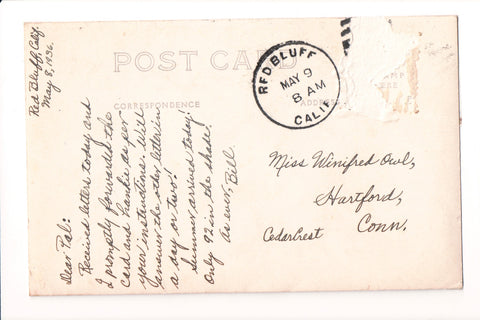 POST CARD
CORRESPONDENCE
ADDRESS
RED BLUFF
MAY 9
8 AM
CALIF.
Red Bluff, Calif.
May 8, 1936.
Dear Pal:
Received letters today and
I promptly forwarded the
card and hankie as per
your instructions. Will
answer the other letter in
a day or two!
Summer arrived today!
Only 92 in the shade!
As ever, Bill.
Miss Winifred Owl,
Hartford,
Conn.
Cedarcrest